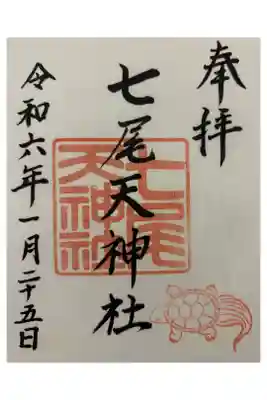 奉拝
七尾天神社
七尾天神社
令和六年一月二十五日